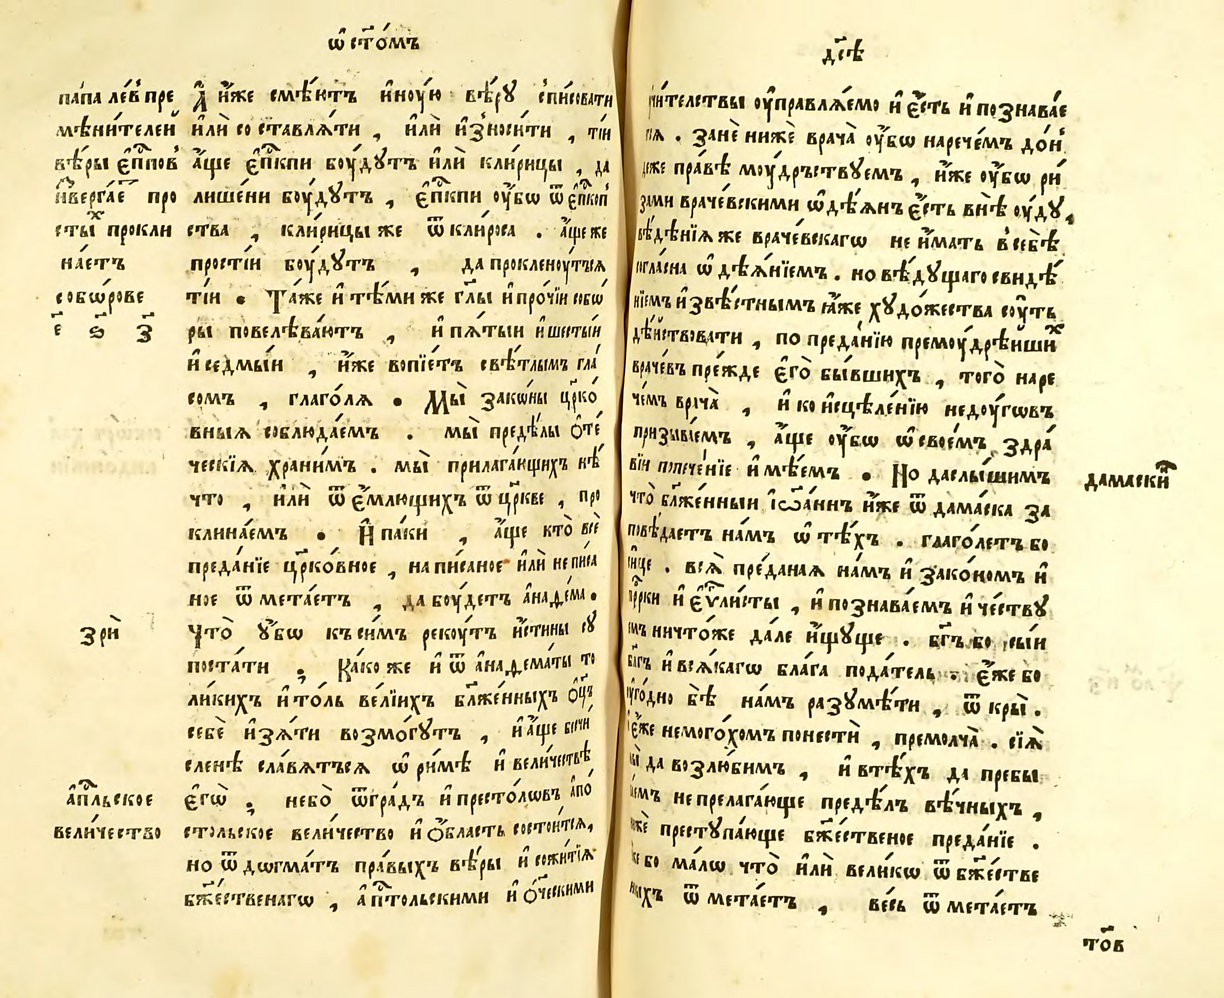 ѡ҆ ст҃о́мъ
папа ле́в̾ пре
мѣни́телей
вѣ́ры є҆п҃пов̾
и҆зверга́е про
сты́х прокли
на́етъ
собѡ́рове
є҃ ѕ҃ з҃
зрѝ
а҆п҃льское
вели́чество
А҆ и҆́же смѣ́ютъ и҆ну́ю вѣ́ру сп̾исовати
и҆лѝ составлѧ́ти , и҆лѝ и҆з̾носи́ти , ті́и
а҆́ще є҆п҃кпи бу́дутъ и҆лѝ кли́рицы , да
лише́ни бу́дутъ , є҆п҃кпи ѹ҆́бѡ ѿ є҆п҃коп̾
ства , кли́рицы же ѿ кли́роса . а҆́ще же
прості́и бу́дутъ , да проклену́тсѧ
ті́и . Та́же и҆ тѣ́ми же гл҃ы и҆ про́чїи собѡ́
ры повелѣва́ютъ , и҆ пѧ́тыи и҆ шесты́и
и҆ седмы́и , и҆́же вопїе́тъ свѣ́тлымъ гла́
сомъ , глаго́лѧ . Мы̀ зако́ны цр҃ко́
вныѧ соблюда́емъ . мы̀ предѣ́лы ѻ҆те́
ческїѧ храни́мъ . мы̀ прилага́ющихъ нѣ́
что , и҆лѝ ѿе́млющихъ ѿ цр҃кве , про
клина́емъ . И҆ па́ки , а҆́ще кто̀ всѐ
преда́нїе цр҃ко́вное , написаное и҆лѝ неписа
ное ѿмета́етъ , да бу́детъ а҆на́ѳема .
Что̀ ѹ҆́бѡ къ си́мъ реку́тъ и҆́стины су
поста́ти ; Ка́ко же и҆ ѿ а҆наѳема́ты то
ли́кихъ и҆ то́ль вели́ихъ бл҃же́нныхъ ѻ҆ц҃ъ
себѐ и҆з̾ѧ́ти возмо́гутъ , и҆ а҆́ще бесчи́
сленѣ сла́вѧтъсѧ ѡ҆ ри́мѣ и҆ вели́чествѣ
є҆гѡ̀ ; не бо̀ ѿ гра́дъ и҆ престо́лѡвъ а҆по́
стольское вели́чество и҆ ѻ҆́бласть состои́тсѧ ,
но ѿ до́гма́тъ пра́выхъ вѣ́ры и҆ сожи́тїѧ
бж҃е́ственагѡ , а҆п҃тольскими и҆ ѻ҆́ч҃ескими
дс҃еѣ
ѹчи́телствы ѹ҆правлѧ́емо и҆ є҆́сть и҆ познава́е
сѧ . занѐ нижѐ врача̀ ѹ҆́бѡ нарече́мъ до́н̾
деже пра́вѣ му́дръствуемъ , и҆́же ѹ҆́бѡ ри́
зами враче́вскими ѡ҆дѣ́ѧнъ є҆́сть внѣ̀ ѹ҆́ду ,
вѣ́дѣнїѧ же враче́вскагѡ не и҆́мать в̾ себѣ̀
согла́сна ѡ҆дѣѧ́нїемъ . но вѣ́дущаго свидѣ́
нїемъ и҆звѣ́стнымъ ꙗ҆́же худо́жества су́ть
дѣ́йствовати , по преда́нїю прему́дрѣиши́х
враче́въ пре́жде є҆го̀ бы́вшихъ , того̀ наре
че́мъ врача̀ , и҆ ко и҆сцѣле́нїю неду́гѡвъ
призыва́емъ , а҆́ще ѹ҆́бѡ ѡ҆ свое́мъ здра́
вїи попече́нїе и҆мѣ́ем . Но да слы́шимъ
что̀ бл҃же́нныи і҆ѡа́ннъ и҆́же ѿ дама́ска за
повѣ́даетъ на́мъ ѡ҆ тѣ́хъ . глаго́летъ бо
си́це . всѧ̀ пре́даная на́мъ и҆ зако́номъ и҆
пр҃рки и҆ є҆ѵ҃ли́сты , и҆ познава́емъ и҆ че́ству
емъ ничто́же да́ле и҆́щуще . бг҃ъ бо сы́и
бл҃гъ и҆ всѧ́кагѡ бла́га пода́тель . є҆́же бо
ѹ҆го́дно бѣ̀ на́мъ разумѣ́ти , ѿкры̀ .
є҆́же немого́хомъ понестѝ , премолча̀ . сїѧ̀
мы̀ да возлю́бимъ , и҆ в тѣ́хъ да пребы
ва́емъ не прелага́юще предѣ́лъ вѣ́чныхъ ,
нижѐ преступа́юще бж҃е́ственое преда́нїе .
и҆́же бо ма́лѡ что̀ и҆лѝ вели́кѡ ѿ бж҃е́стве
ныхъ ѿмета́етъ , ве́сь ѿмета́етъ
дамаски́н
то́в